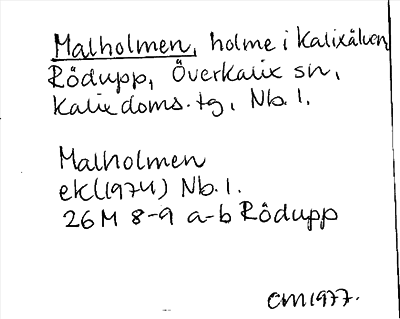 Malholmen, holme i Kalixälven
Rödupp, Överkalix sn,
Kalix doms. tg, Nb. l.
Malholmen
ek (1974) Nb. l.
26 M 8-9 a-b Rödupp
CM 1977.